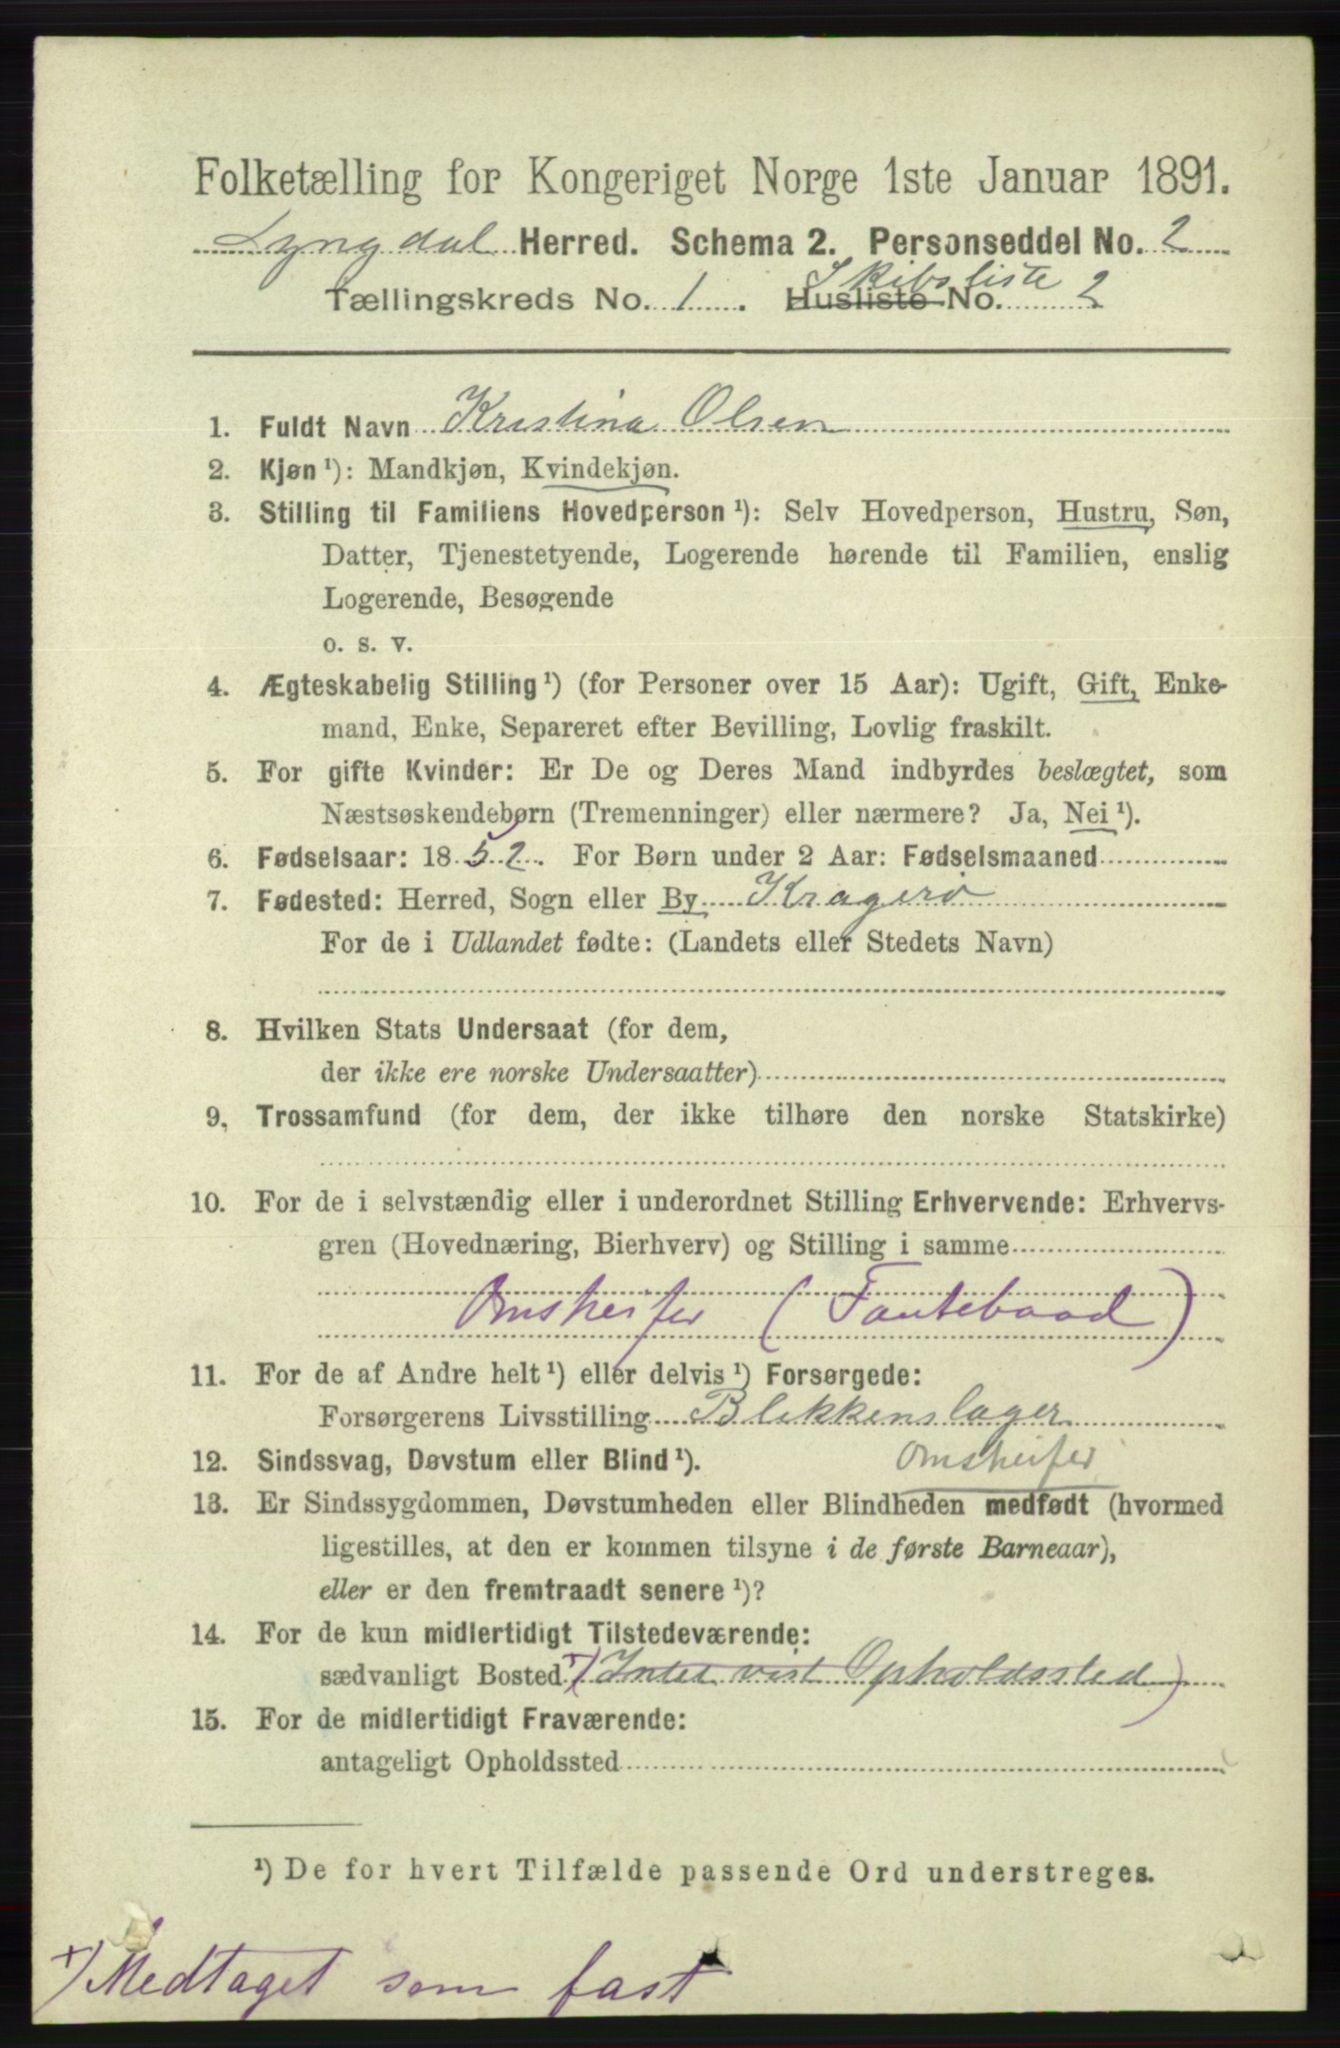 Folketælling for Kongeriget Norge 1ste Januar 1891.
Lyngdal Herred. Schema 2. Personseddel No. 2
Skibsliste
Tællingskreds No. 1. Husliste No. 2
1. Fuldt Navn Kristina Olsen
2. Kjøn ¹): Mandkjøn, Kvindekjøn.
3. Stilling til Familiens Hovedperson ¹): Selv Hovedperson, Hustru, Søn,
Datter, Tjenestetyende, Logerende hørende til Familien, enslig
Logerende, Besøgende
o. s. v.
4. Ægteskabelig Stilling ¹) (for Personer over 15 Aar): Ugift, Gift, Enke-
mand, Enke, Separeret efter Bevilling, Lovlig fraskilt.
5. For gifte Kvinder: Er De og Deres Mand indbyrdes beslægtet, som
Næstsøskendebørn (Tremenninger) eller nærmere? Ja, Nei ¹).
6. Fødselsaar: 1852. For Børn under 2 Aar: Fødselsmaaned
7. Fødested: Herred, Sogn eller By Kragerö
For de i Udlandet fødte: (Landets eller Stedets Navn)
8. Hvilken Stats Undersaat (for dem,
der ikke ere norske Undersaatter)
9. Trossamfund (for dem, der ikke tilhøre den norske Statskirke)
10. For de i selvstændig eller i underordnet Stilling Erhvervende: Erhvervs-
gren (Hovednæring, Bierhverv) og Stilling i samme
Omstreifer (Fantebaad)
11. For de af Andre helt ¹) eller delvis ¹) Forsørgede:
Forsørgerens Livsstilling Blekkenslager
12. Sindssvag, Døvstum eller Blind ¹). Omstreifer
13. Er Sindssygdommen, Døvstumheden eller Blindheden medfødt (hvormed
ligestilles, at den er kommen tilsyne i de første Barneaar),
eller er den fremtraadt senere ¹)?
14. For de kun midlertidigt Tilstedeværende:
sædvanligt Bosted +) (Intet vist Opholdssted)
15. For de midlertidigt Fraværende:
antageligt Opholdssted
¹) De for hvert Tilfælde passende Ord understreges.
+) Medtaget som fast